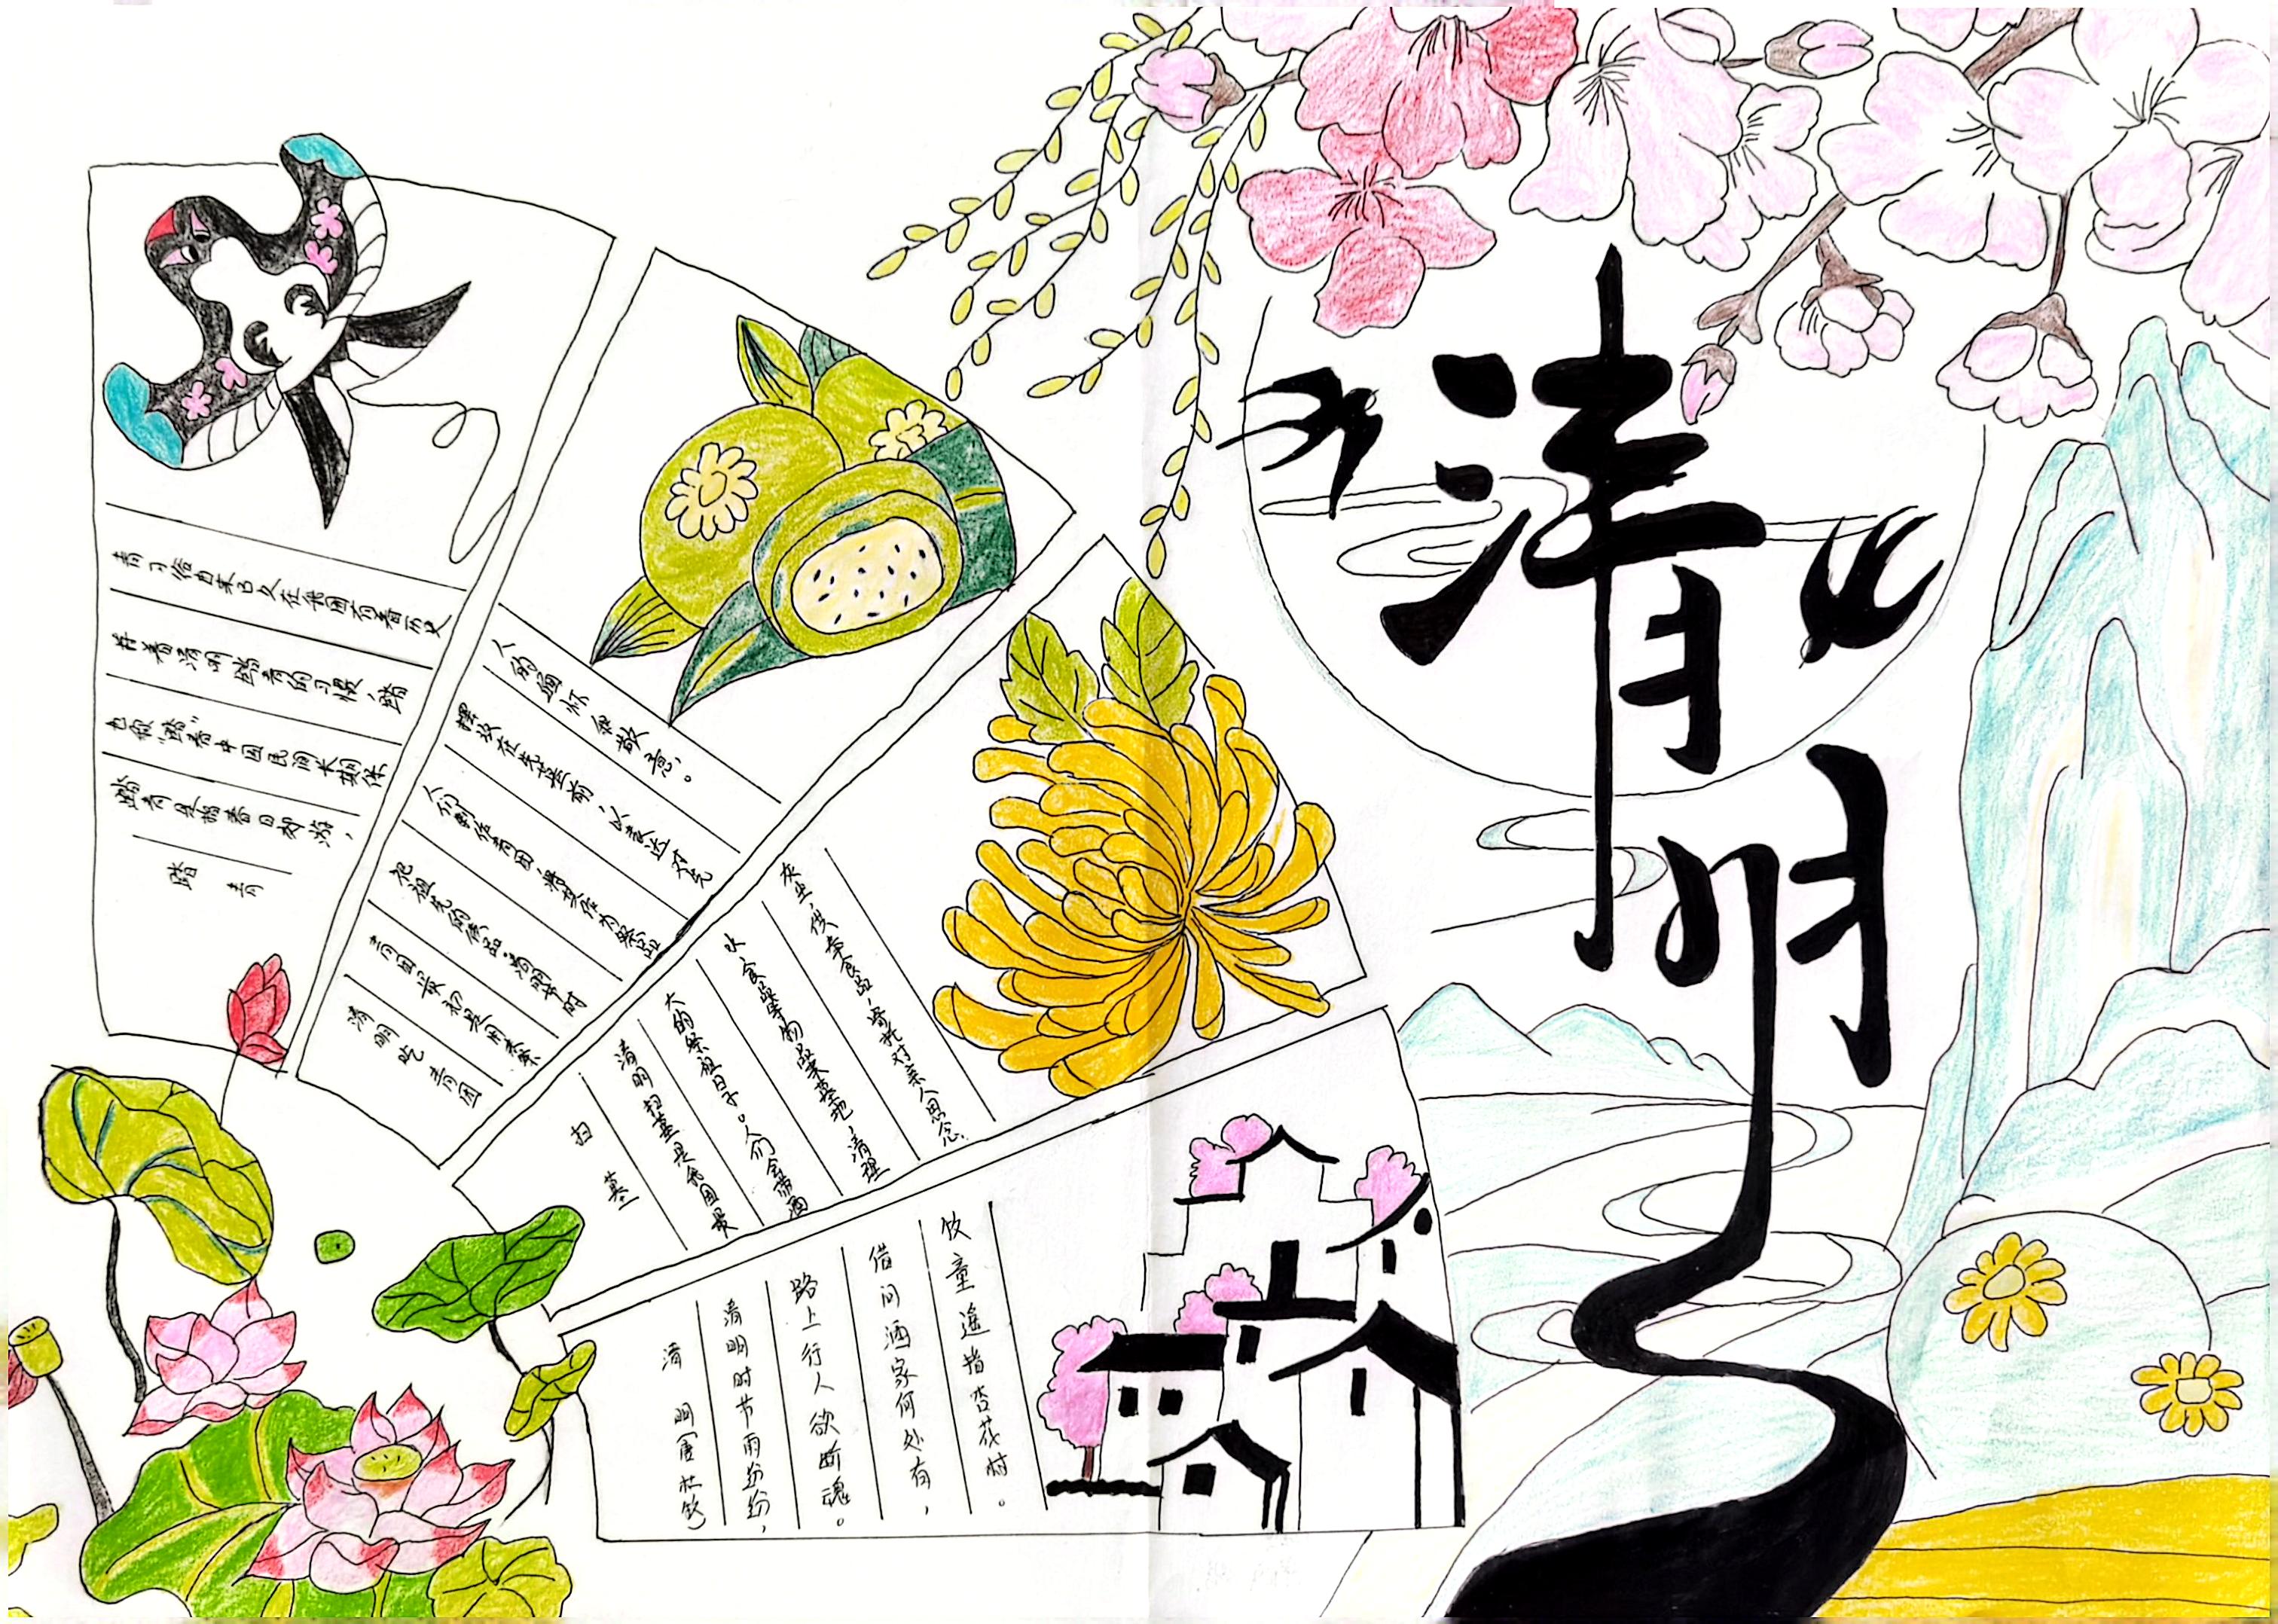 清明
踏青
踏青是指春日郊游,
也称"踏春"中国民间长期保
持着清明踏青的习惯,踏
青习俗由来已久在我国有着历史
清明吃青团
青团最初是用来祭
祀祖先的供品。清明节时
人们制作青团,将其作为祭品
摆放在先茔前,以表达对先
人的缅怀和敬意。
扫墓
清明扫墓是我国最
大的祭祖日子。人们会带酒
水、食品等物品来墓地,清理
灰尘,供奉食品,寄托对亲人思念.
清明(唐 杜牧)
清明时节雨纷纷,
路上行人欲断魂。
借问酒家何处有,
牧童遥指杏花村。